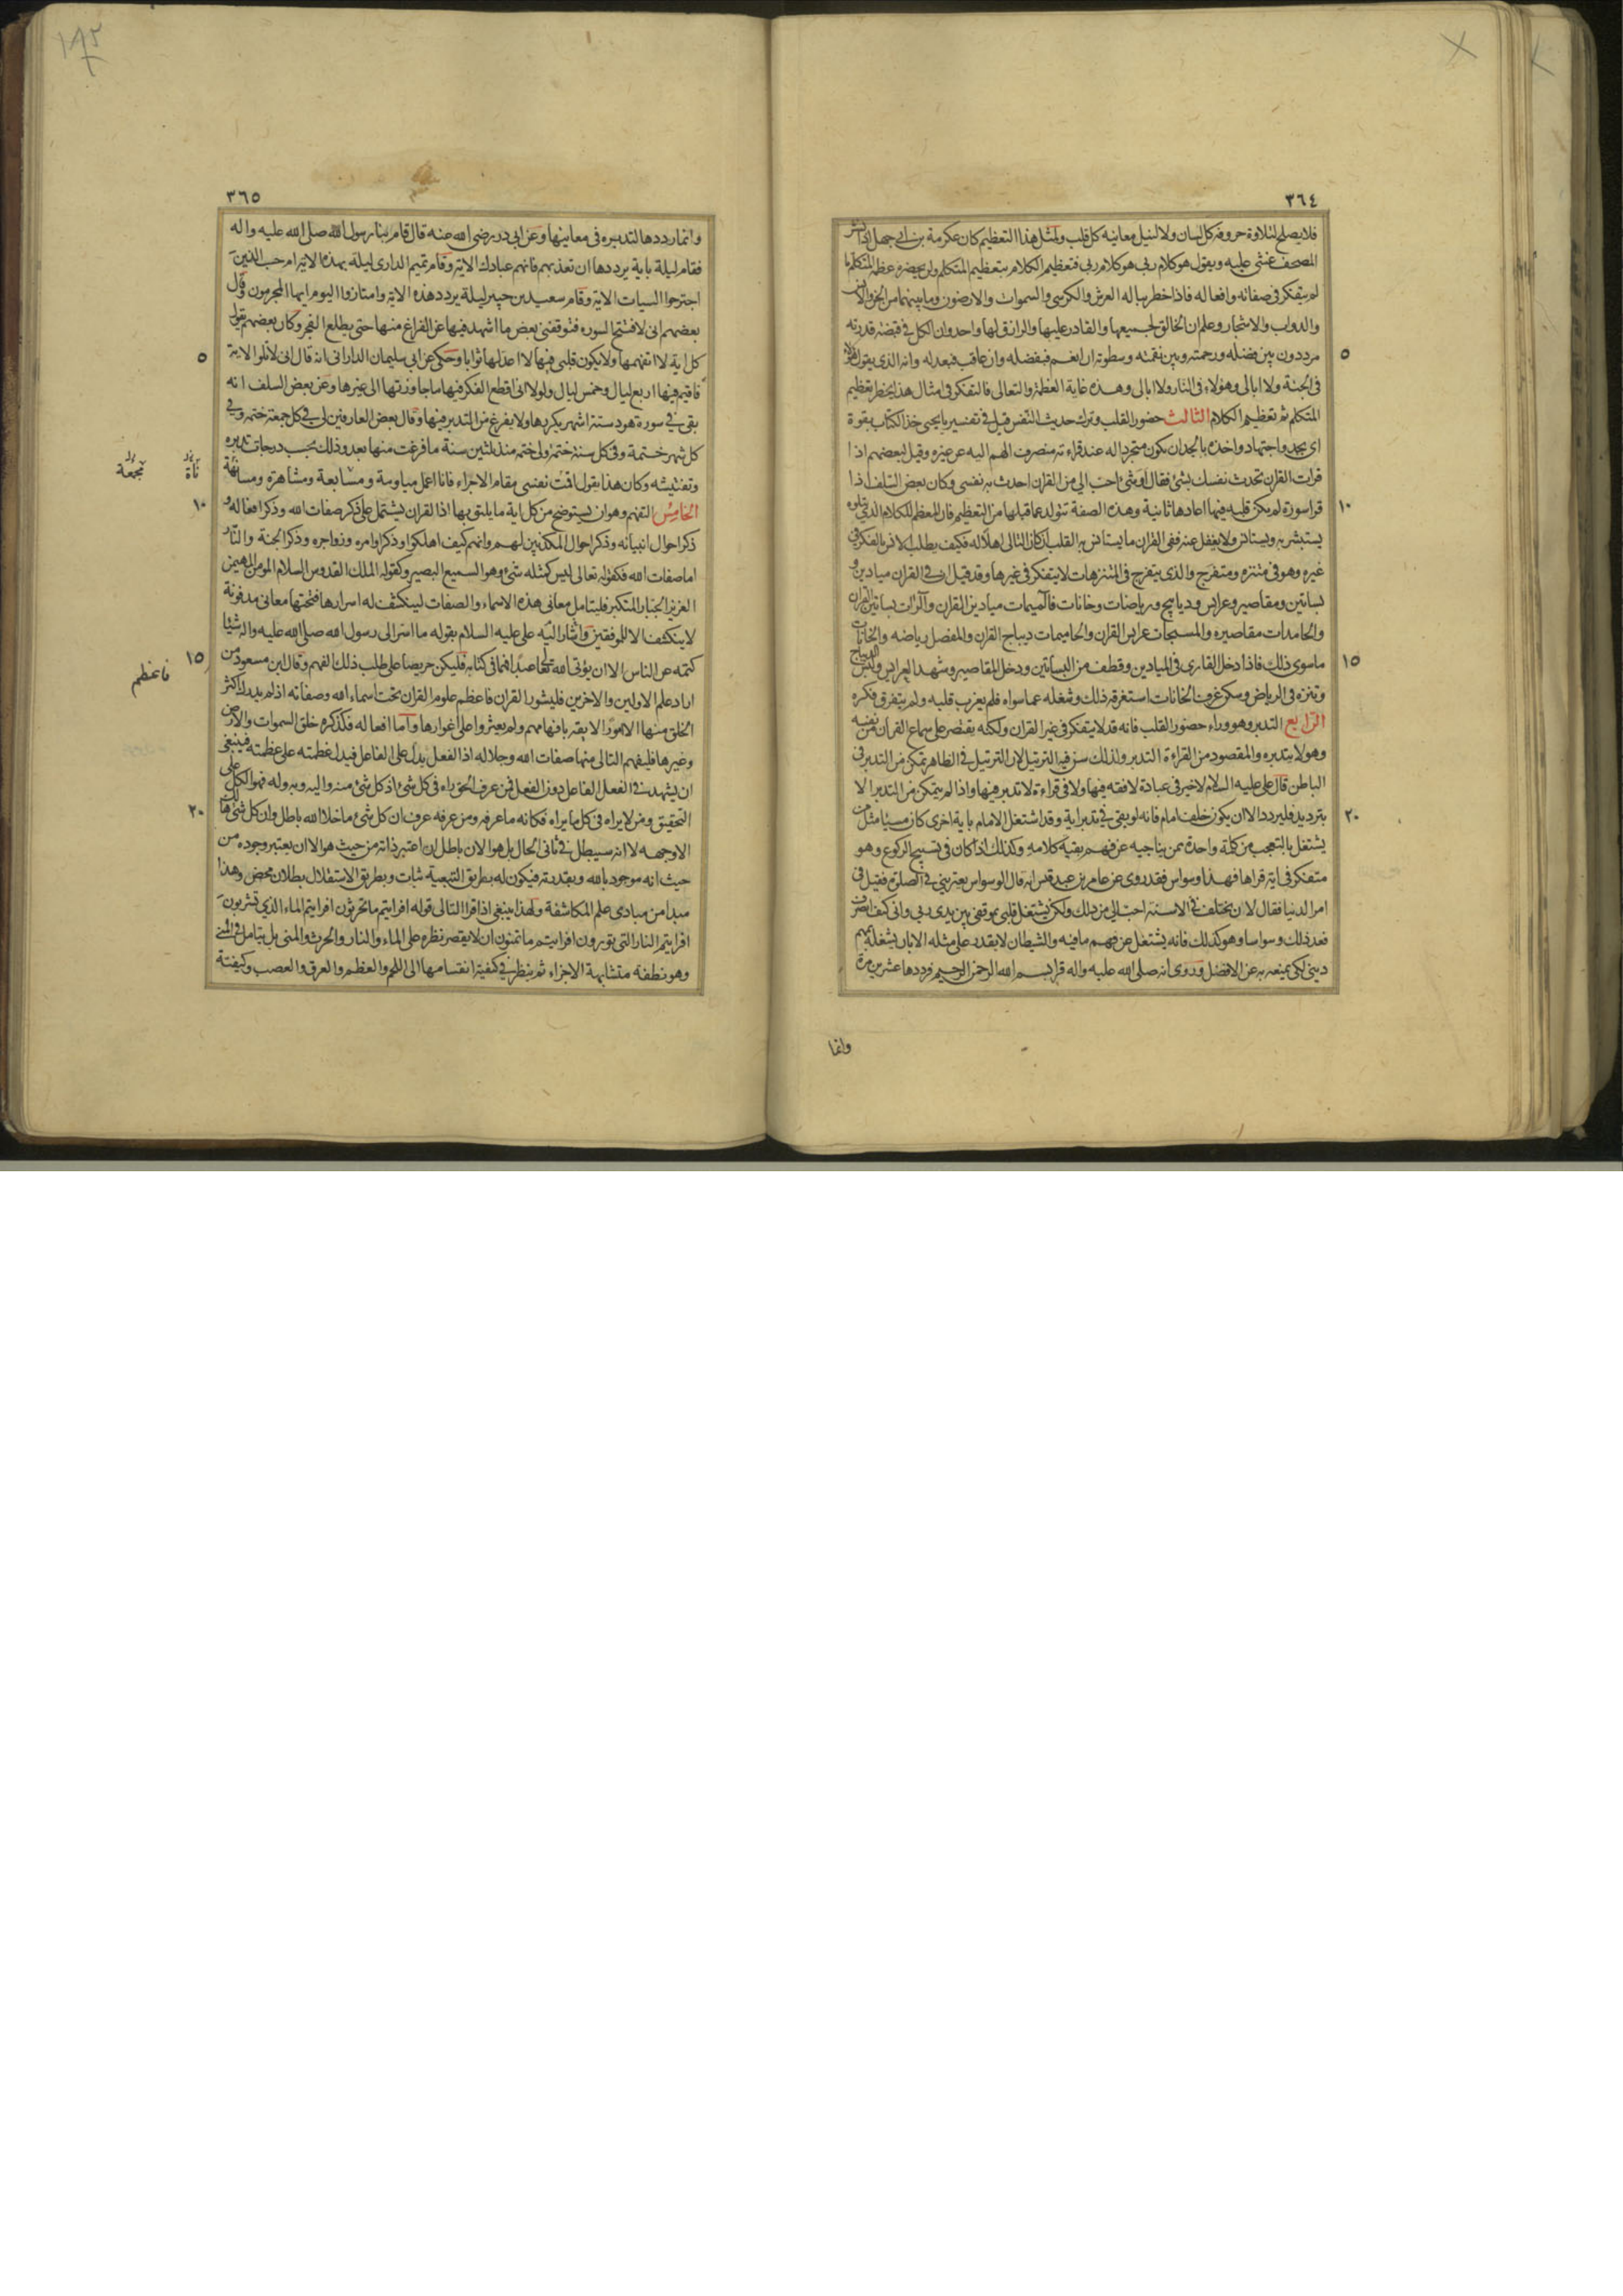 ٣٦٤
فلا يصلح لتلاوة حروفه كل لسان ولا لنيل معانيه كل قلب ولمثل هذا التعظيم كان عكرمة بن ابي جهل اذا نشر
المصحف غشى عليه ويقول هو كلام ربى هو كلام ربى فتعظيم الكلام بتعظيم المتكلم ولن يحضره عظمة المتكلم ما
لم يتفكر فى صفاته وافعاله فاذا خطر بباله العرش والكرسى والسموات والارضون وما بينهما من الجن والانس
والدواب والاشجار وعلم ان الخالق لجميعها والقادر عليها والرازق لها واحد وان الكل في قبضة قدرته
٥
مرددون بين فضله ورحمته وبين نقمته وسطوته ان انعم فبفضله وان عاقب فبعدله وانه الذى يقول هؤلاء
فى الجنة ولا ابالى وهؤلاء فى النار ولا ابالى وهذه غاية العظمة والتعالى فالتفكر فى امثال هذا يحضر تعظيم
المتكلم ثم تعظيم الكلام الثالث حضور القلب وترك حديث النفس قيل فى تفسير يا يحيى خذ الكتاب بقوة
اى بجد واجتهاد واخذه بالجد ان يكون متجردا له عند قراءته منصرف الهم اليه عن غيره وقيل لبعضهم اذا
قرات القران تحدث نفسك بشئ فقال او شئ احب الي من القران احدث به نفسى وكان بعض السلف اذا
١٠
قرا سورة لم يكن قلبه فيها اعادها ثانية وهذه الصفة تتولد عما قبلها من التعظيم فان المعظم للكلام الذي يتلوه
يستبشر به ويستانس ولا يغفل عنه ففى القران ما يستانس به القلب ان كان التالى اهلا له فكيف يطلب الانس بالفكر فى
غيره وهو فى متنزه ومتفرج والذى يتفرج فى المتنزهات لا يتفكر فى غيرها وقد قيل ان في القران ميادين و
بساتين ومقاصير وعرايس وديابيج ورياضات وخانات فالميمات ميادين القران والرات بساتين القران
والحامدات مقاصيره والمسبحات عرايس القران والحاميمات ديباج القران والمفصل رياضه والخانات
١٥
ماسوى ذلك فاذا دخل القارى فى الميادين وقطف من البساتين ودخل المقاصير وشهد العرايس ولبس الديباج
وتنزه فى الرياض وسكن غرف الخانات استغرقه ذلك وشغله عما سواه فلم يعزب قلبه ولم يتفرق فكره
الرابع التدبر وهو وراء حضور القلب فانه قد لا يتفكر فى غير القران ولكنه يقتصر على سماع القران من نفسه
وهو لا يتدبره والمقصود من القراءة التدبر ولذلك سن فيه الترتيل لان الترتيل في الظاهر تمكن من التدبر فى
الباطن قال على عليه السلام لا خير فى عبادة لا فقه فيها ولا فى قراءة لا تدبر فيها واذا لم يتمكن من التدبر الا
٢٠
بترديد فليردد الا ان يكون خلف امام فانه لو بقى في تدبر اية وقد اشتغل الامام باية اخرى كان مسيئا مثل من
يشتغل بالتعجب من كلمة واحدة ممن يناجيه عن فهم بقية كلامه وكذلك اذا كان فى تسبيح الركوع وهو
متفكر فى اية قراها فهذا وسواس فقد روى عن عامر بن عبد قيس انه قال الوسواس يعترينى في الصلوة فقيل فى
امر الدنيا فقال لان تختلف في الاسنة احب الي من ذلك ولكن يشتغل قلبى بموقفى بين يدى ربى وانى كيف انصرف
فعد ذلك وسواسا وهو كذلك فانه يشتغل عن فهم ما فيه والشيطان لا يقدر على مثله الا بان يشغله بمهم
دينى لكن يمنعه به عن الافضل وروى انه صلى الله عليه واله قرا بسم الله الرحمن الرحيم فرددها عشرين مرة
وانما
٣٦٥
وانما رددها لتدبره فى معانيها وعن ابي ذر رضى الله عنه قال قام بنا رسول الله صلى الله عليه واله
فقام ليلة باية يرددها ان تعذبهم فانهم عبادك الاية وقام تميم الدارى ليلة بهذه الاية ام حسب الذين
اجترحوا السيات الاية وقام سعيد بن جبير ليلة يردد هذه الاية وامتازوا اليوم ايها المجرمون وقال
بعضهم انى لافتتح السورة فتوقفنى بعض ما اشهد فيها عن الفراغ منها حتى يطلع الفجر وكان بعضهم يقول
٥
كل اية لا اتفهمها ولا يكون قلبى فيها لا اعد لها ثوابا وحكى عن ابى سليمان الدارانى انه قال انى لاتلوا الاية
فاقيم فيها اربع ليال وخمس ليال ولولا انى اقطع الفكر فيها ما جاوزتها الى غيرها وعن بعض السلف انه
بقى في سورة هود ستة اشهر يكررها ولا يفرغ من التدبر فيها وقال بعض العارفين لى في كل جمعة ختمة وفي
كل شهر ختمة وفى كل سنة ختمة ولى ختمة منذ ثلثين سنة ما فرغت منها بعد وذلك بحسب درجات تدبره
وتفتيشه وكان هذا يقول اقمت نفسى مقام الاجراء فانا اعمل مياومة ومسابعة ومشاهرة ومسانهة
مجمعة
١٠
الخامس التفهم وهو ان يستوضح من كل اية ما يليق بها اذ القران يشتمل على ذكر صفات الله وذكر افعاله و
ذكر احوال انبيائه وذكر احوال المكذبين لهم وانهم كيف اهلكوا وذكر اوامره وزواجره وذكر الجنة والنار
اما صفات الله فكقوله تعالى ليس كمثله شئ وهو السميع البصير وكقوله الملك القدوس السلام المؤمن المهيمن
العزيز الجبار المتكبر فليتامل معانى هذه الاسماء والصفات لينكشف له اسرارها فتحتها معانى مدفونة
لا ينكشف الا للموفقين واشار اليه على عليه السلام بقوله ما اسر الى رسول الله صلى الله عليه واله شيئا
١٥
كتمه عن الناس الا ان يؤتى الله تعالى عبدا فهما فى كتابه فليكن حريصا على طلب ذلك الفهم وقال ابن مسعود من
اراد علم الاولين والاخرين فليثور القران فاعظم علوم القران تحت اسماء الله وصفاته اذ لم يدرك اكثر
فاعظم
الخلق منها الا امورا لايقة بافهامهم ولم يعثروا على اغوارها واما افعاله فكذكره خلق السموات والارض
وغيرها فليفهم التالى منها صفات الله وجلاله اذ الفعل يدل على الفاعل فيدل عظمته على عظمته فينبغى
ان يشهد في الفعل الفاعل دون الفعل فمن عرف الحق راه فى كل شئ اذ كل شئ منه واليه وبه وله فهو الكل على
٢٠
التحقيق ومن لا يراه فى كل ما يراه فكانه ما عرفه ومن عرفه عرف ان كل شئ ما خلا الله باطل وان كل شئ هالك
الا وجهه لا انه سيبطل في ثانى الحال بل هو الان باطل ان اعتبر ذاته من حيث هو الا ان يعتبر وجوده من
حيث انه موجود بالله وبقدرته فيكون له بطريق التبعية ثبات وبطريق الاستقلال بطلان محض وهذا
مبدا من مبادى علم المكاشفة ولهذا ينبغى اذا قرا التالى قوله افرايتم ما تحرثون افرايتم الماء الذي تشربون
افرايتم النار التى تورون افرايتم ما تمنون ان لا يقصر نظره على الماء والنار والحرث والمنى بل يتامل فى المنى
وهو نطفة متشابهة الاجزاء ثم ينظر في كيفية انقسامها الى اللحم والعظم والعرق والعصب وكيفية